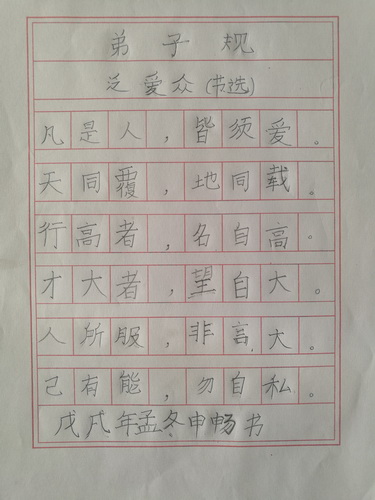 弟子规
泛爱众(节选)
凡是人,皆须爱。
天同覆,地同载。
行高者,名自高。
才大者,望自大。
人所服,非言大。
己有能,勿自私。
戊戌年孟冬申畅书